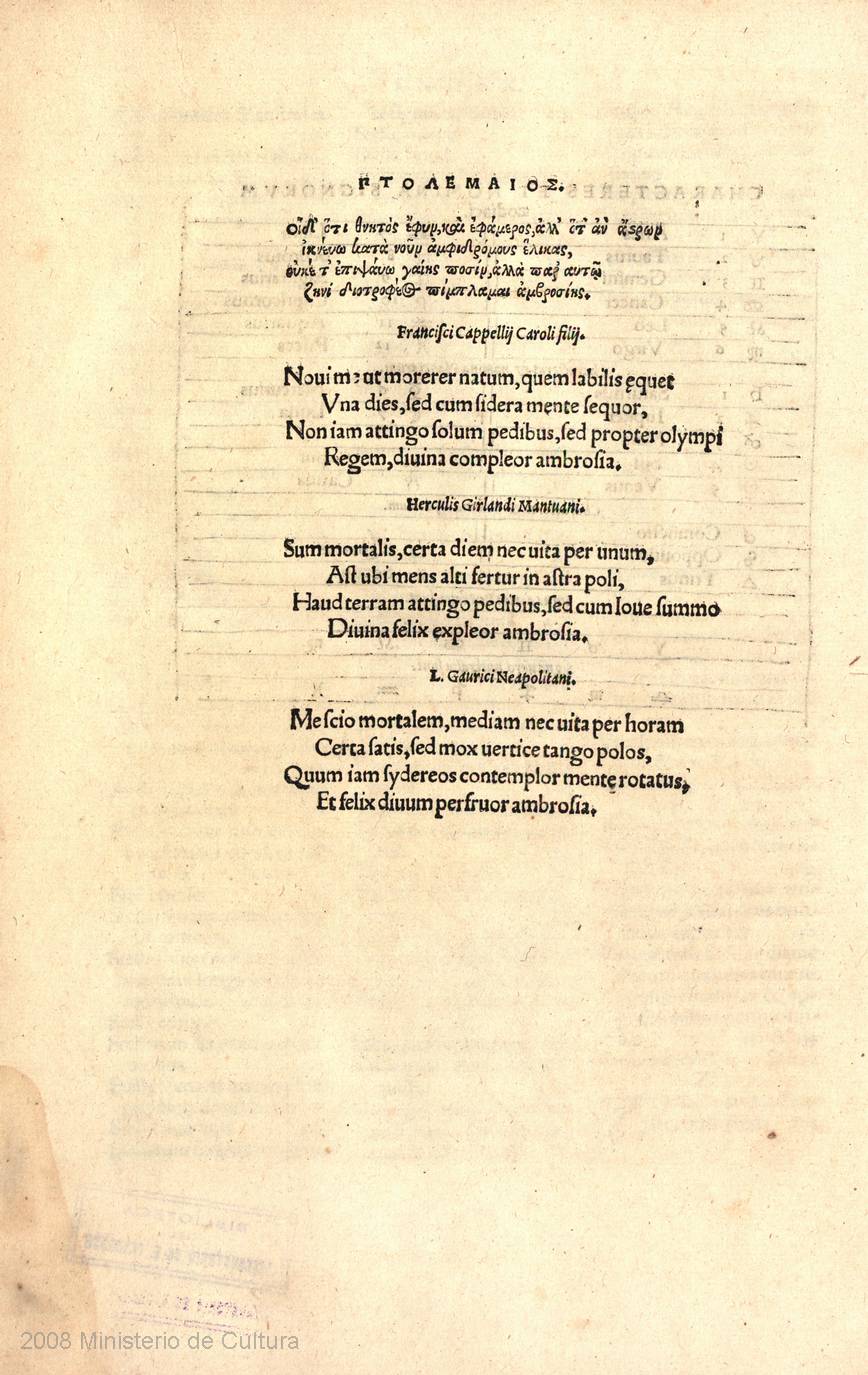 ΠΤΟΛΕΜΑΙΟΣ.
οἶδ' ὅτι θνητὸς ἔφυν, καὶ ἐφάμερος, ἀλλ' ὅτ' ἂν ἄστρων
ἰχνεύω κατὰ νοῦν ἀμφιδρόμους ἕλικας,
οὐκέτ' ἐπιψάυω γαίης ποσίν, ἀλλὰ παρ' αυτῷ
ζηνὶ διοτροφέος πίμπλαμαι ἀμβροσίης.
Franciſci Cappellij Caroli filij.
Noui me ut morerer natum, quem labilis ęquet
Vna dies, ſed cum ſidera mente ſequor,
Non iam attingo ſolum pedibus, ſed propter olympi
Regem, diuina compleor ambroſia.
Herculis Girlandi Mantuani.
Sum mortalis, certa diem nec uita per unum,
Aſt ubi mens alti fertur in aſtra poli,
Haud terram attingo pedibus, ſed cum Ioue ſummo
Diuina felix expleor ambroſia.
L. Gaurici Neapolitani.
Me ſcio mortalem, mediam nec uita per horam
Certa ſatis, ſed mox uertice tango polos,
Quum iam ſydereos contemplor mente rotatus,
Et felix diuum perfruor ambroſia.
2008 Ministerio de Cultura